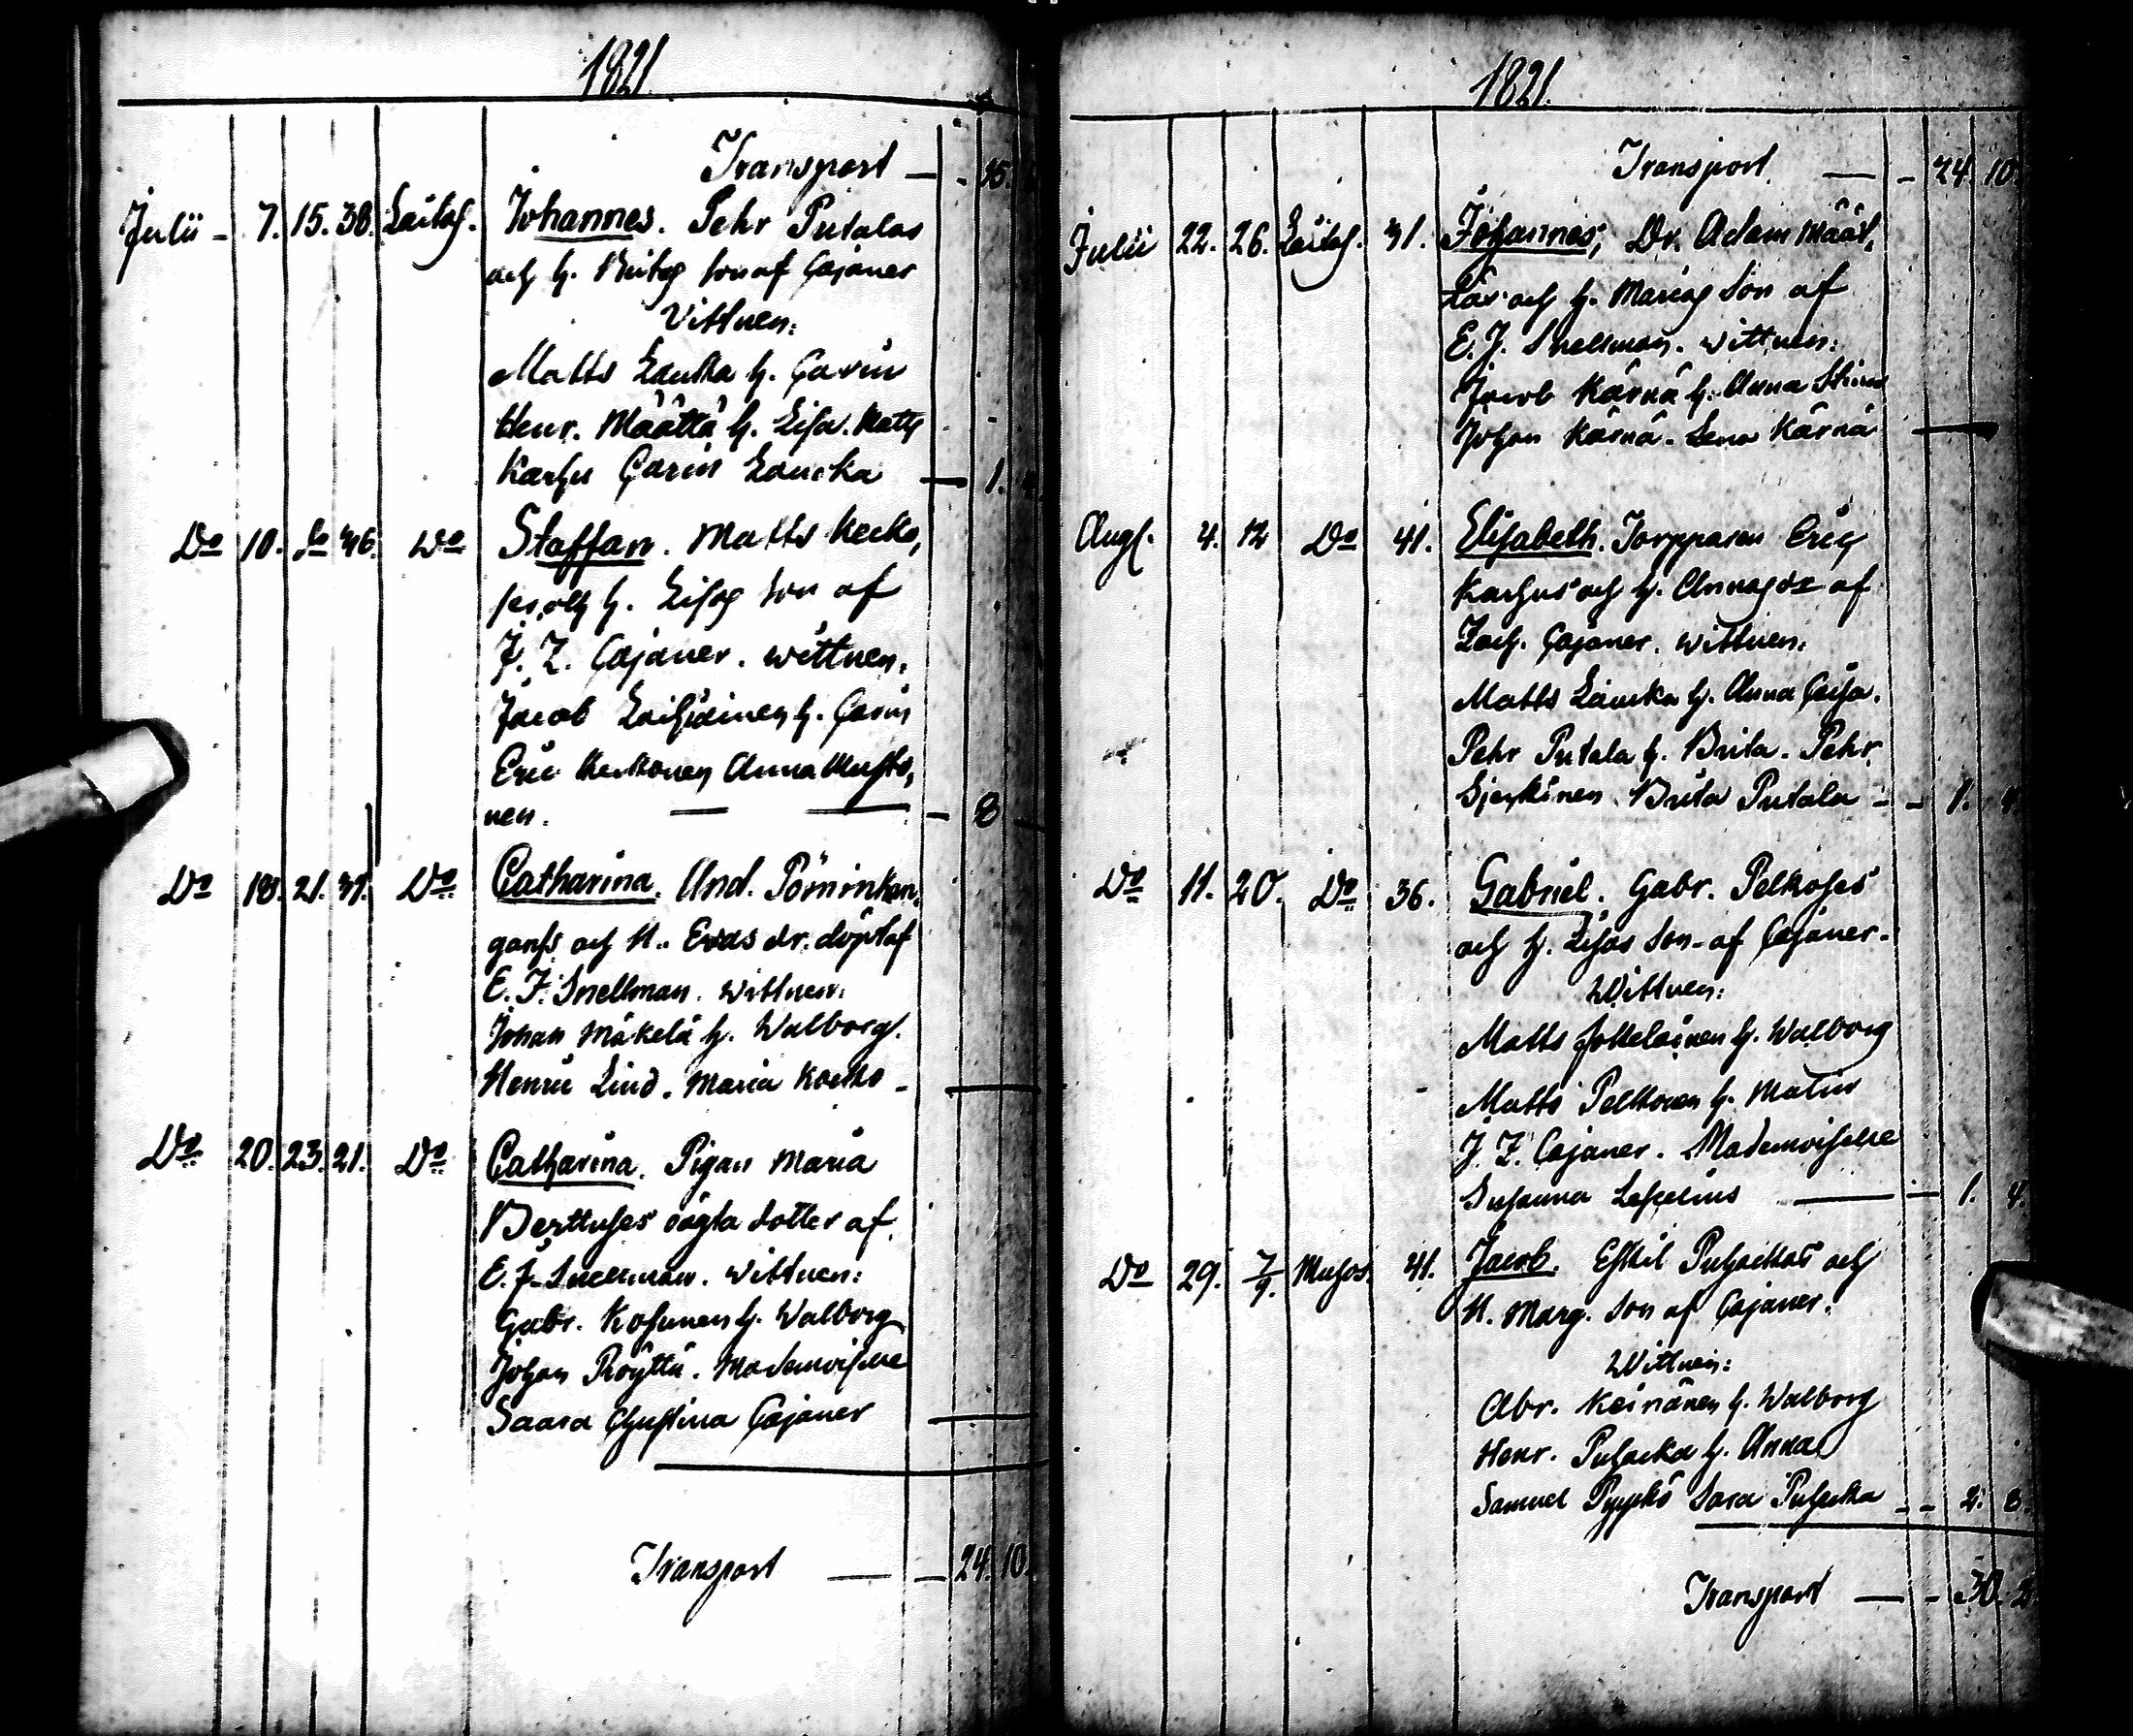 1821.
Transport — - 15.
Julii - 7. 15. 38. Laitas. Johannes. Pehr Putalas
och h. Britas son af Cajaner
Vittnen:
Matts Laucka h. Carin
Henr. Määttä h. Lisa. Matts
Karhu Carin Laucka — 1.
Do 10. Do 36. Do Staffan. Matts Kecko,
ses och h. Lisas son af
J. Z. Cajaner. wittnen.
Jacob h. Carin
Eric Keckonen Anna Musto,
nen. — — - 8
Do 18. 21. 31. Do Catharina. And. Pörninkan,
gas's och H. Evas dr. döpt af
E. J. Snellman. wittnen:
Johan Mäkelä h. Walborg.
Henric Lind. Maria Kocko -
Do 20. 23. 21. Do Catharina. Pigan Maria
Berttuses oägta dotter af
E. J. Snellman. wittnen:
Gabr. Kosunen h. Walborg
Johan Pöyttä. Mademoiselle
Saara Christina Cajaner
Transport — - 24. 10.
1821.
Transport. — - 24. 10.
Julii 22. 26. Laitas. 31. Johannes, Dr. Adam Määt,
täs och h. Marias son af
E. J. Snellman. wittnen:
Jacob Kärnä h. Anna Stina
Johan Kärnä. Lena Kärnä —
Aug. 4. 12 Do 41. Elisabeth. Torpparen Eric
Karhus och h. Annas dr af
Zach. Cajaner. wittnen:
Matts Laucka h. Anna Caisa.
Pehr Putala h. Brita. Pehr
Brita Putala - - 1. 4.
Do 11. 20. Do 36. Gabriel. Gabr. Pelkoses
och h. Lisas son af Cajaner.
Wittnen:
Matts h. Walborg
Matts Pelkonen h. Malin
J. Z. Cajaner. Mademoiselle
Susanna — - 1. 4.
Do 29. 7/9. Muhos. 41. Jacob. Eskil Puhackas och
H. Marg. son af Cajaner.
Wittnen:
Abr. Keinänen h. Walborg
Henr. Puhacka h. Anna
Samuel Pyykö Sara Puhacka - - 2. 8.
Transport — - 30. 2.